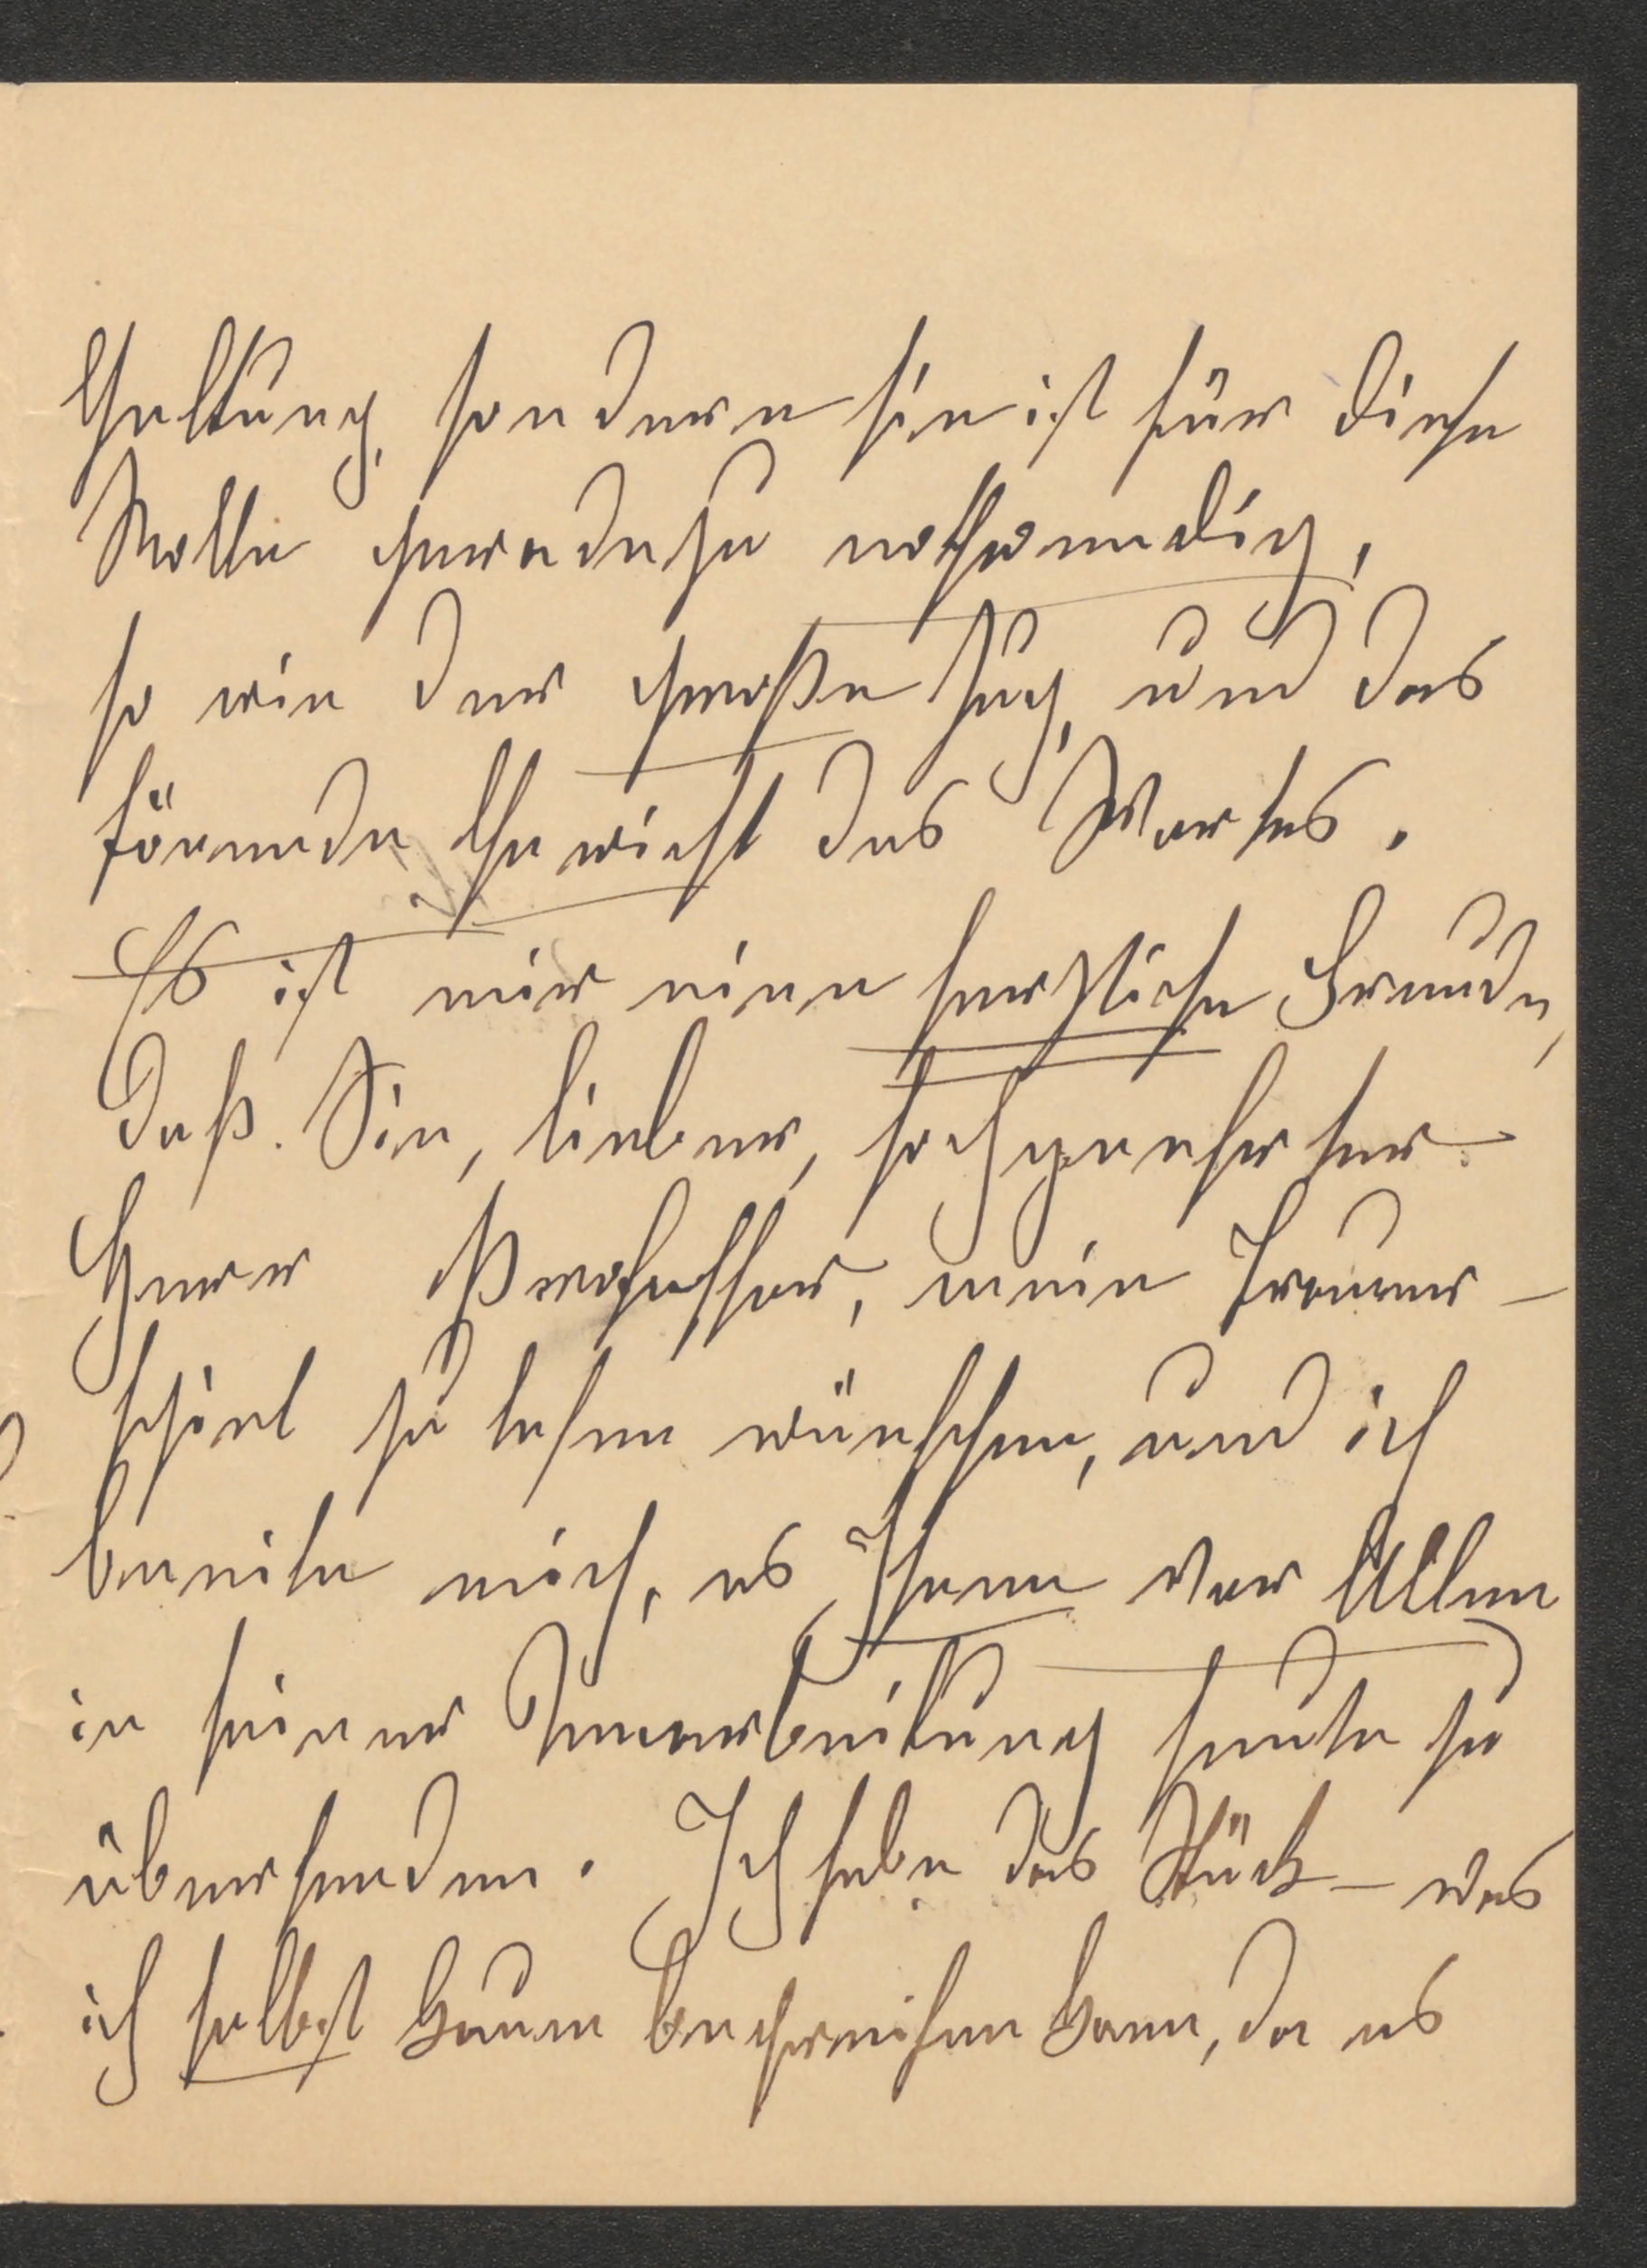 Geltung, sondern sie ist für diese
Rolle geradezu nothwendig,
so wie der große Zug, und das
tönende Gewicht des Wortes.
Es ist mir eine herzliche Freude,
daß Sie, lieber, hochgeehrter
Herr Professor, mein Trauer-
spiel zu lesen wünschen, und ich
beeile mich, es Ihnen vor Allen
in seiner Umarbeitung heute zu
übersenden. Ich habe das Stück – was
ich selbst kaum begreifen kann, da es